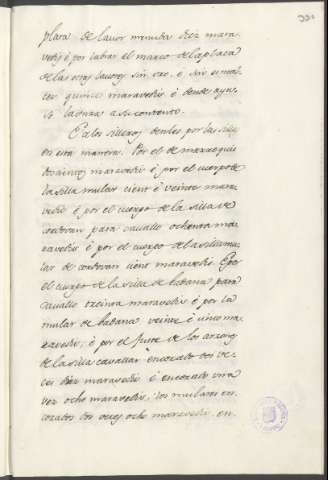 plata de lauor menuda diez mara-
vedis é por labrar el marco de la plata
de las otras lauores sin oro, é sin esmal-
tes quinze maravedis é dende ayu-
so
É a los silleros denles por las sillas
en esta manera. Por el de
maravedis é por el cuerpo de
la silla mular cient é veinte mara-
vedis é por el cuerpo de la silla de
cordovan para cavallo ochenta ma-
ravedis é por el cuerpo de la silla mu-
lar de cordovan cient maravedis É por
el cuerpo de la silla de badana para
cavallo treinta maravedis é por la
mular de badana veinte é cinco ma-
ravedis, é por el fuste de los arzones
de la silla cavallar encorado dos ve-
ces diez maravedis é encorado una
vez ocho maravedis, los mulares en-
corados dos veces ocho maravedis, en-